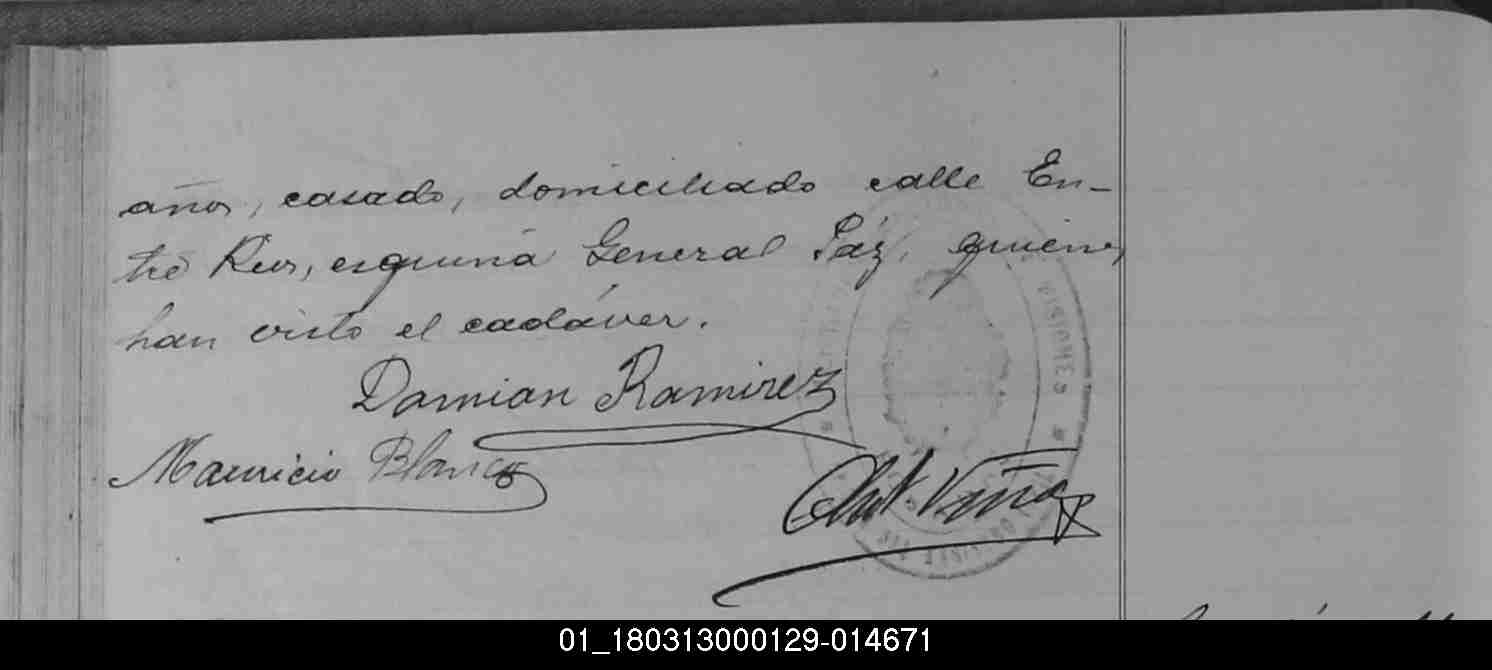 años, casado, domiciliado calle En-
tre Rios, esquina General Páz, quienes
han visto el cadáver.
Damian Ramirez
Mauricio Blanco
MISIONES
REGISTRO
01_180313000129-014671